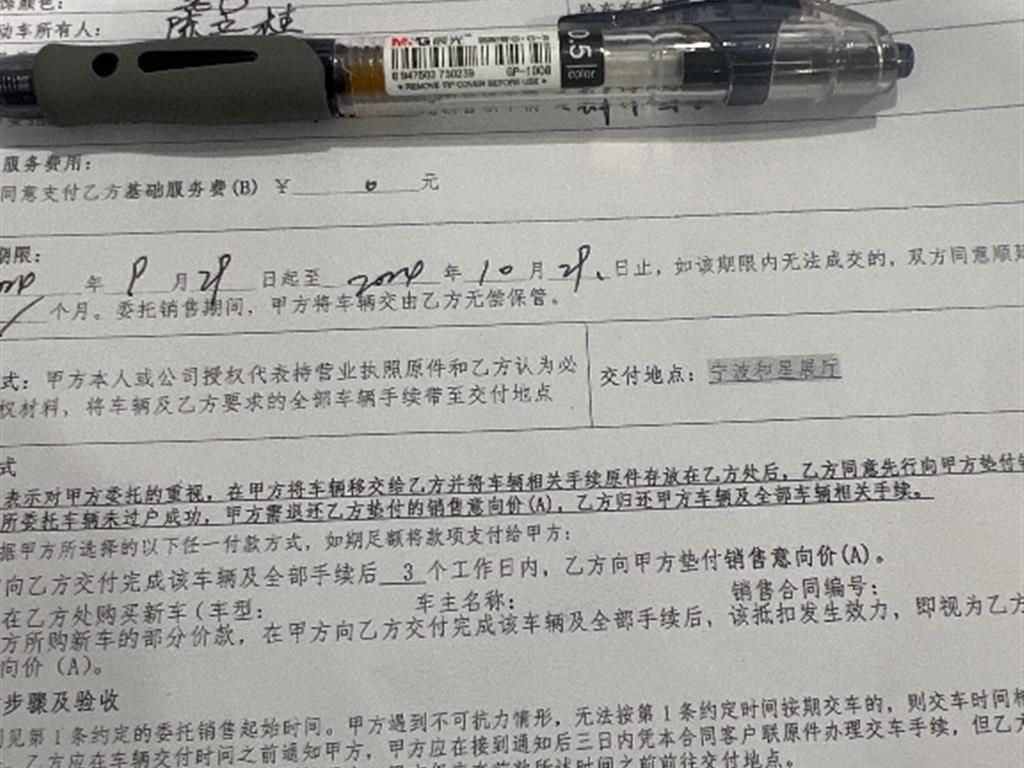 动车所有人：
M&G 晨光
0.5
color
6 947503 730239 GP-1008
★ REMOVE TIP COVER BEFORE USE ★
服务费用：
同意支付乙方基础服务费(B) ￥ 0 元
期限：
年 9 月 29 日起至 2024 年 10 月 29 日止，如该期限内无法成交的，双方同意顺延
个月。委托销售期间，甲方将车辆交由乙方无偿保管。
式：甲方本人或公司授权代表持营业执照原件和乙方认为必
权材料，将车辆及乙方要求的全部车辆手续带至交付地点
交付地点：宁波和星展厅
式
表示对甲方委托的重视，在甲方将车辆移交给乙方并将车辆相关手续原件存放在乙方处后，乙方同意先行向甲方垫付销
所委托车辆未过户成功，甲方需退还乙方垫付的销售意向价(A)，乙方归还甲方车辆及全部车辆相关手续。
据甲方所选择的以下任一付款方式，如期足额将款项支付给甲方：
向乙方交付完成该车辆及全部手续后 3 个工作日内，乙方向甲方垫付销售意向价(A)。
在乙方处购买新车（车型： 车主名称： 销售合同编号：
方所购新车的部分价款，在甲方向乙方交付完成该车辆及全部手续后，该抵扣发生效力，即视为乙方
向价（A）。
步骤及验收
见第1条约定的委托销售起始时间。甲方遇到不可抗力情形，无法按第1条约定时间按期交车的，则交车时间相
乙方应在车辆交付时间之前通知甲方，甲方应在接到通知后三日内凭本合同客户联原件办理交车手续，但乙方
时间之前前往交付地点。